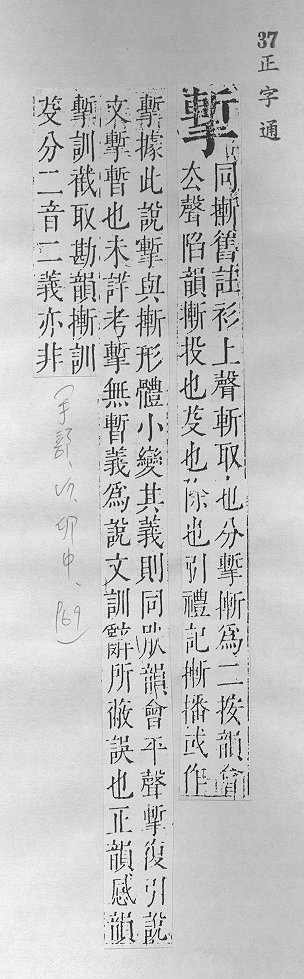 37
正字通
摲
同摲舊註衫上聲斬取也分摲摲爲二按韻會
去聲陷韻摲投也芟也除也引禮記摲播或作
摲據此說摲與摲形體小變其義則同㳄韻會平聲摲復引說
文摲暫也未詳考摲無暫義爲說文訓辭所蔽誤也正韻感韻
摲訓𢧵取勘韻摲訓
芟分二音二義亦非
手部
卯中
P69